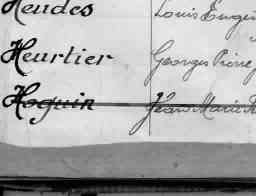 Hendes Louis Eugè
Heurtier Georges Pierre
Hoguin Jean Marie